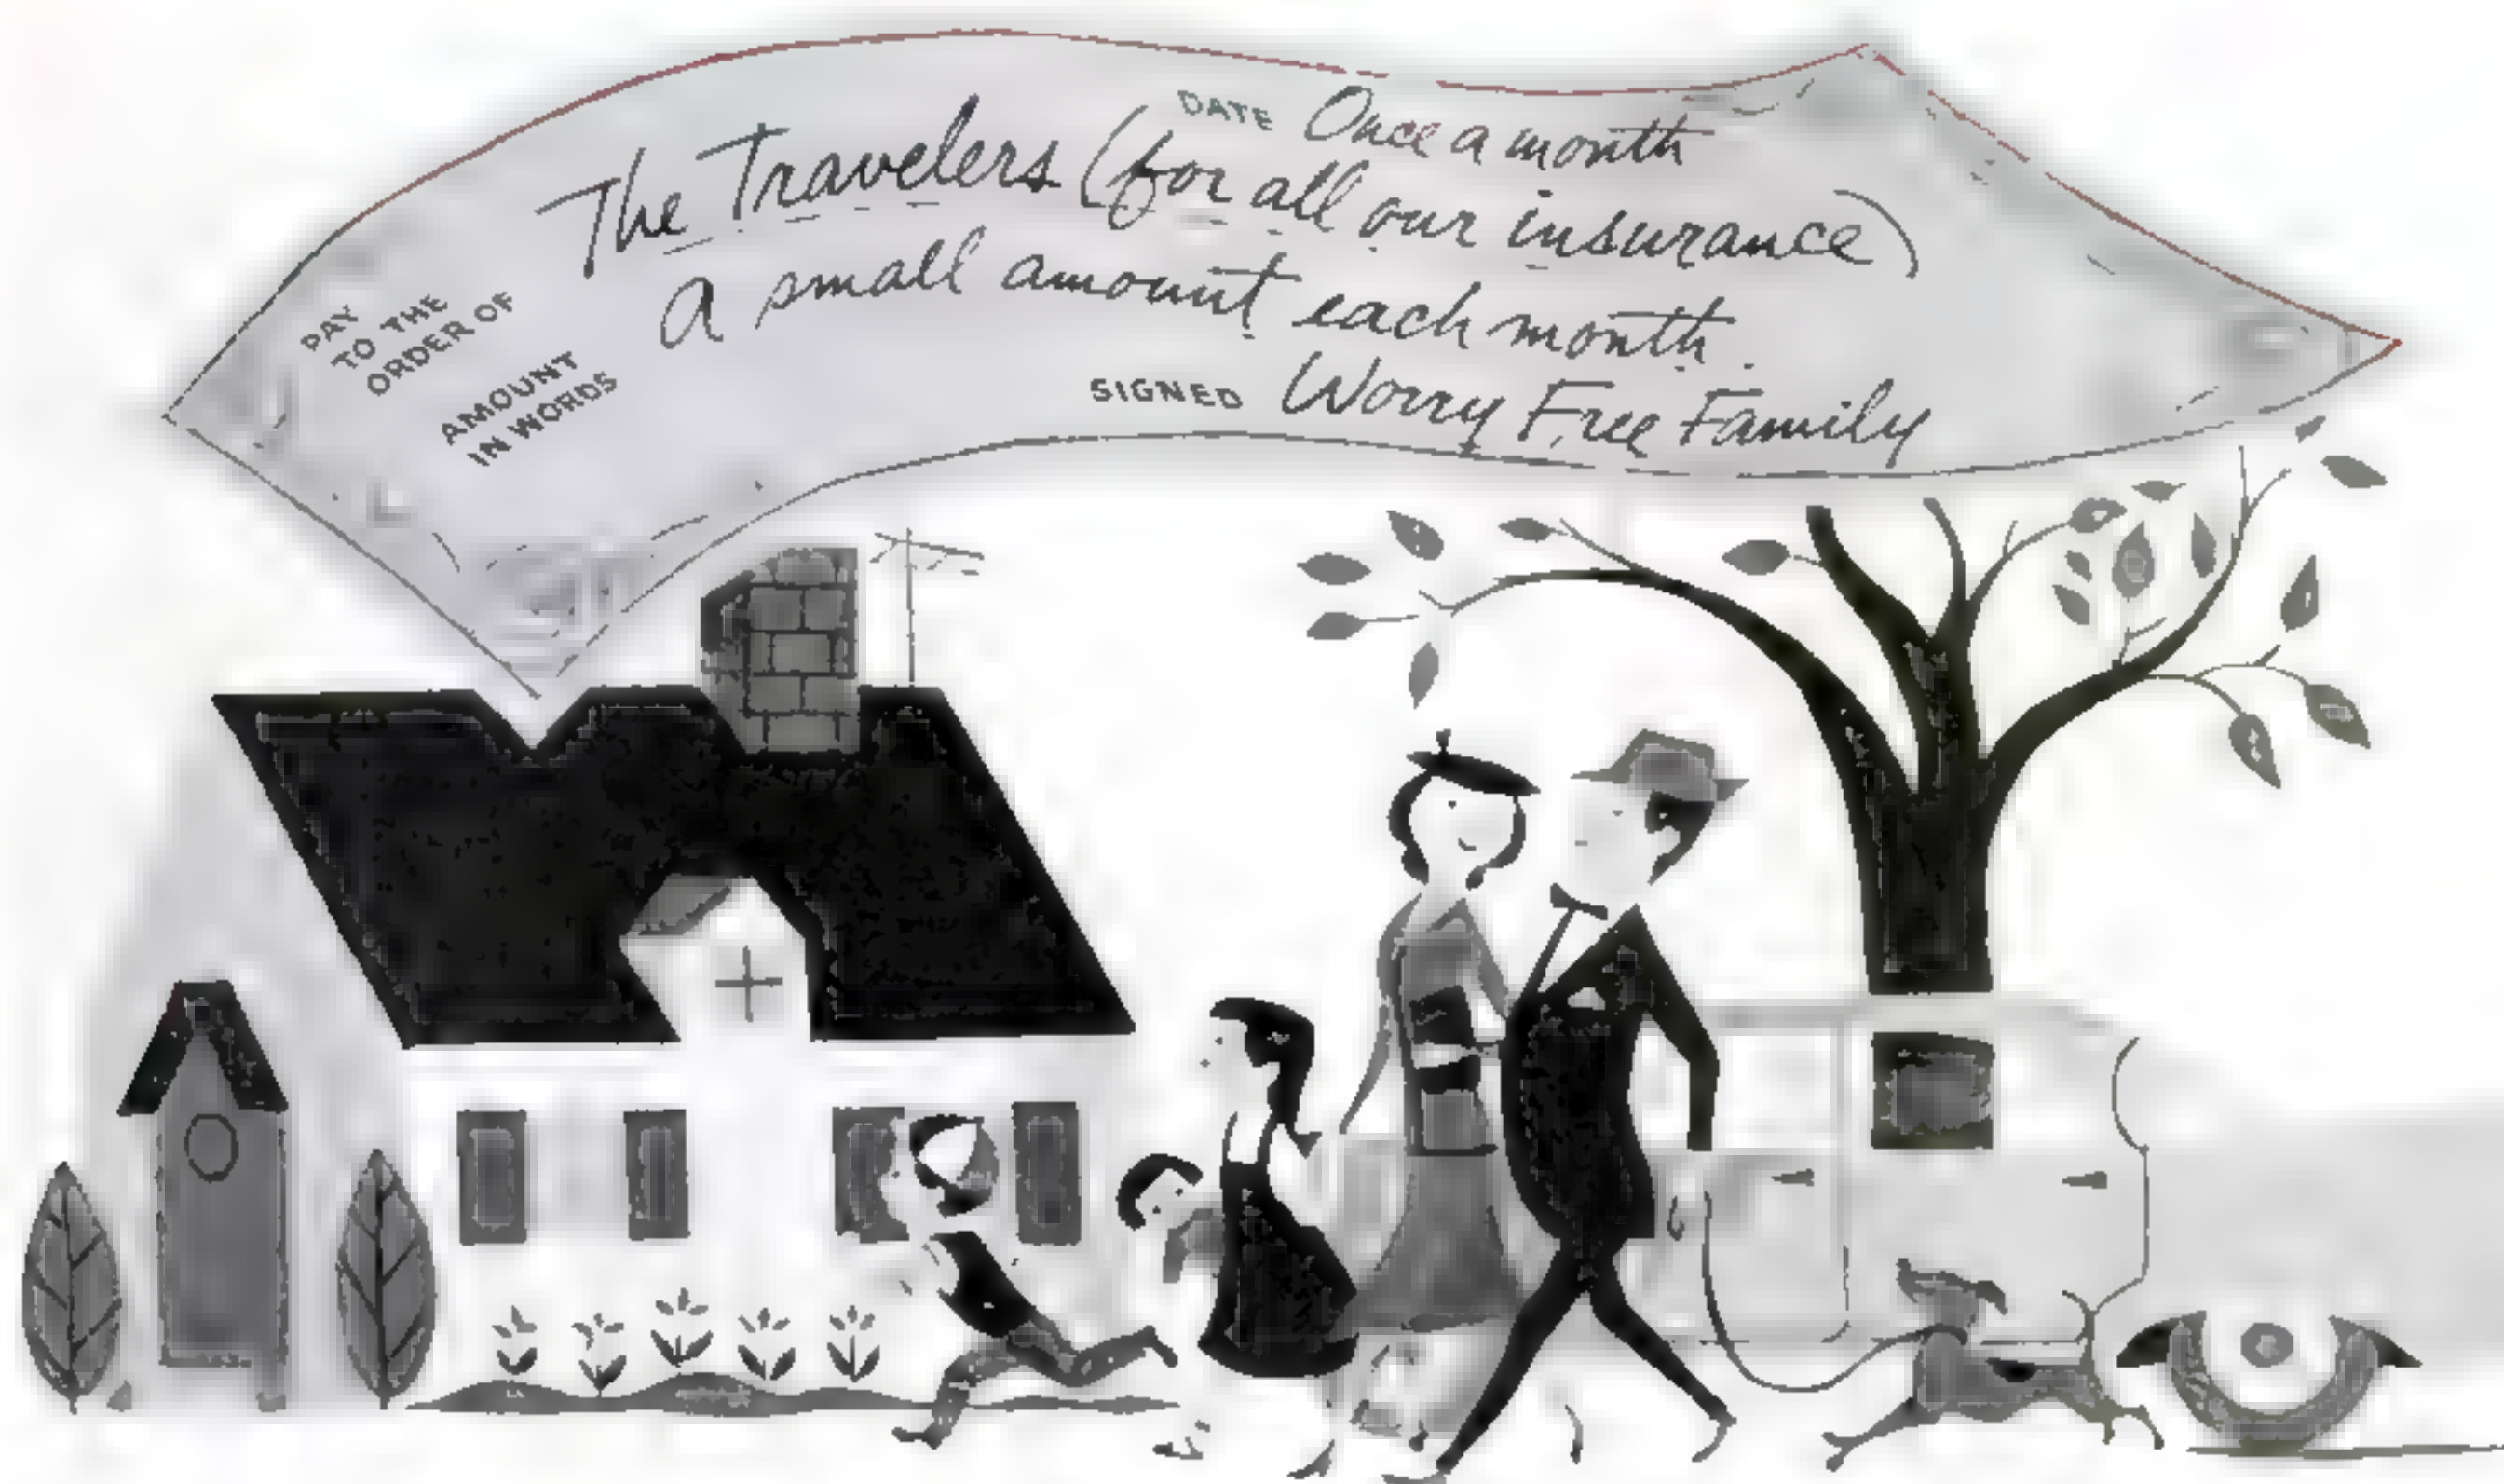 DATE Once a month
PAY
TO THE
ORDER OF
The Travelers (for all our insurance)
AMOUNT
IN WORDS
a small amount each month.
SIGNED Worry Free Family